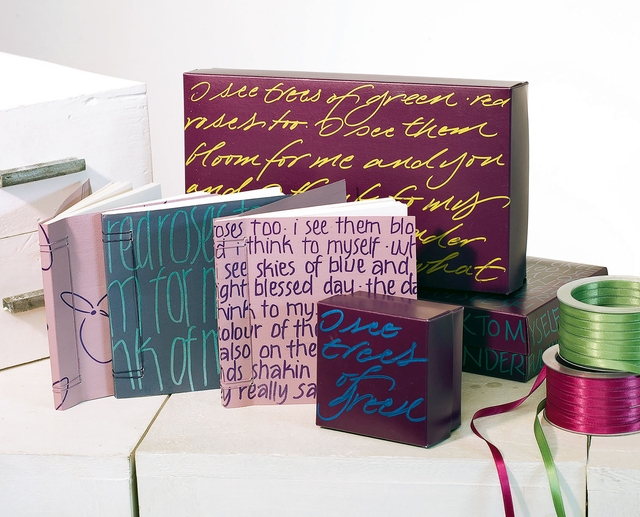 I see trees of green red
roses too. I see them
bloom for me and you
and to my
what
red roses
m for
nk of
oses too. i see them blo
d i think to myself. wh
see skies of blue and
ght blessed day. the da
ink to my
olour of th
also on the
ds shakin
y really sa
I see
trees
of
green
K TO MYSELF
NDER